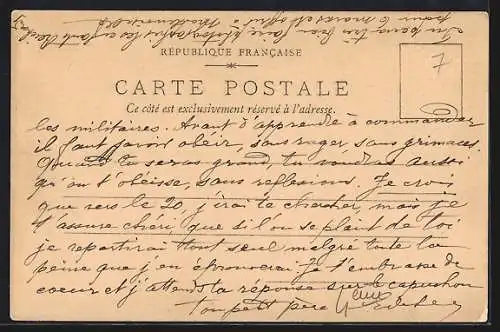 RÉPUBLIQUE FRANÇAISE
CARTE POSTALE
Ce côté est exclusivement réservé à l'adresse.
7
les militaires. Avant d'apprendre à commander
il faut savoir obéir, sans rager, sans grimaces.
Quand tu seras grand, tu voudras aussi
qu'on t'obéisse, sans reflexions. Je crois
que vers le 20, j'irai te chercher, mais je
t'assure chéri, que si l'on se plaint de toi
je repartirai tout seul malgré toute la
peine que j'en éprouverai. Je t'embrasse de
coeur et j'attends la réponse sur le capuchon
ton petit père